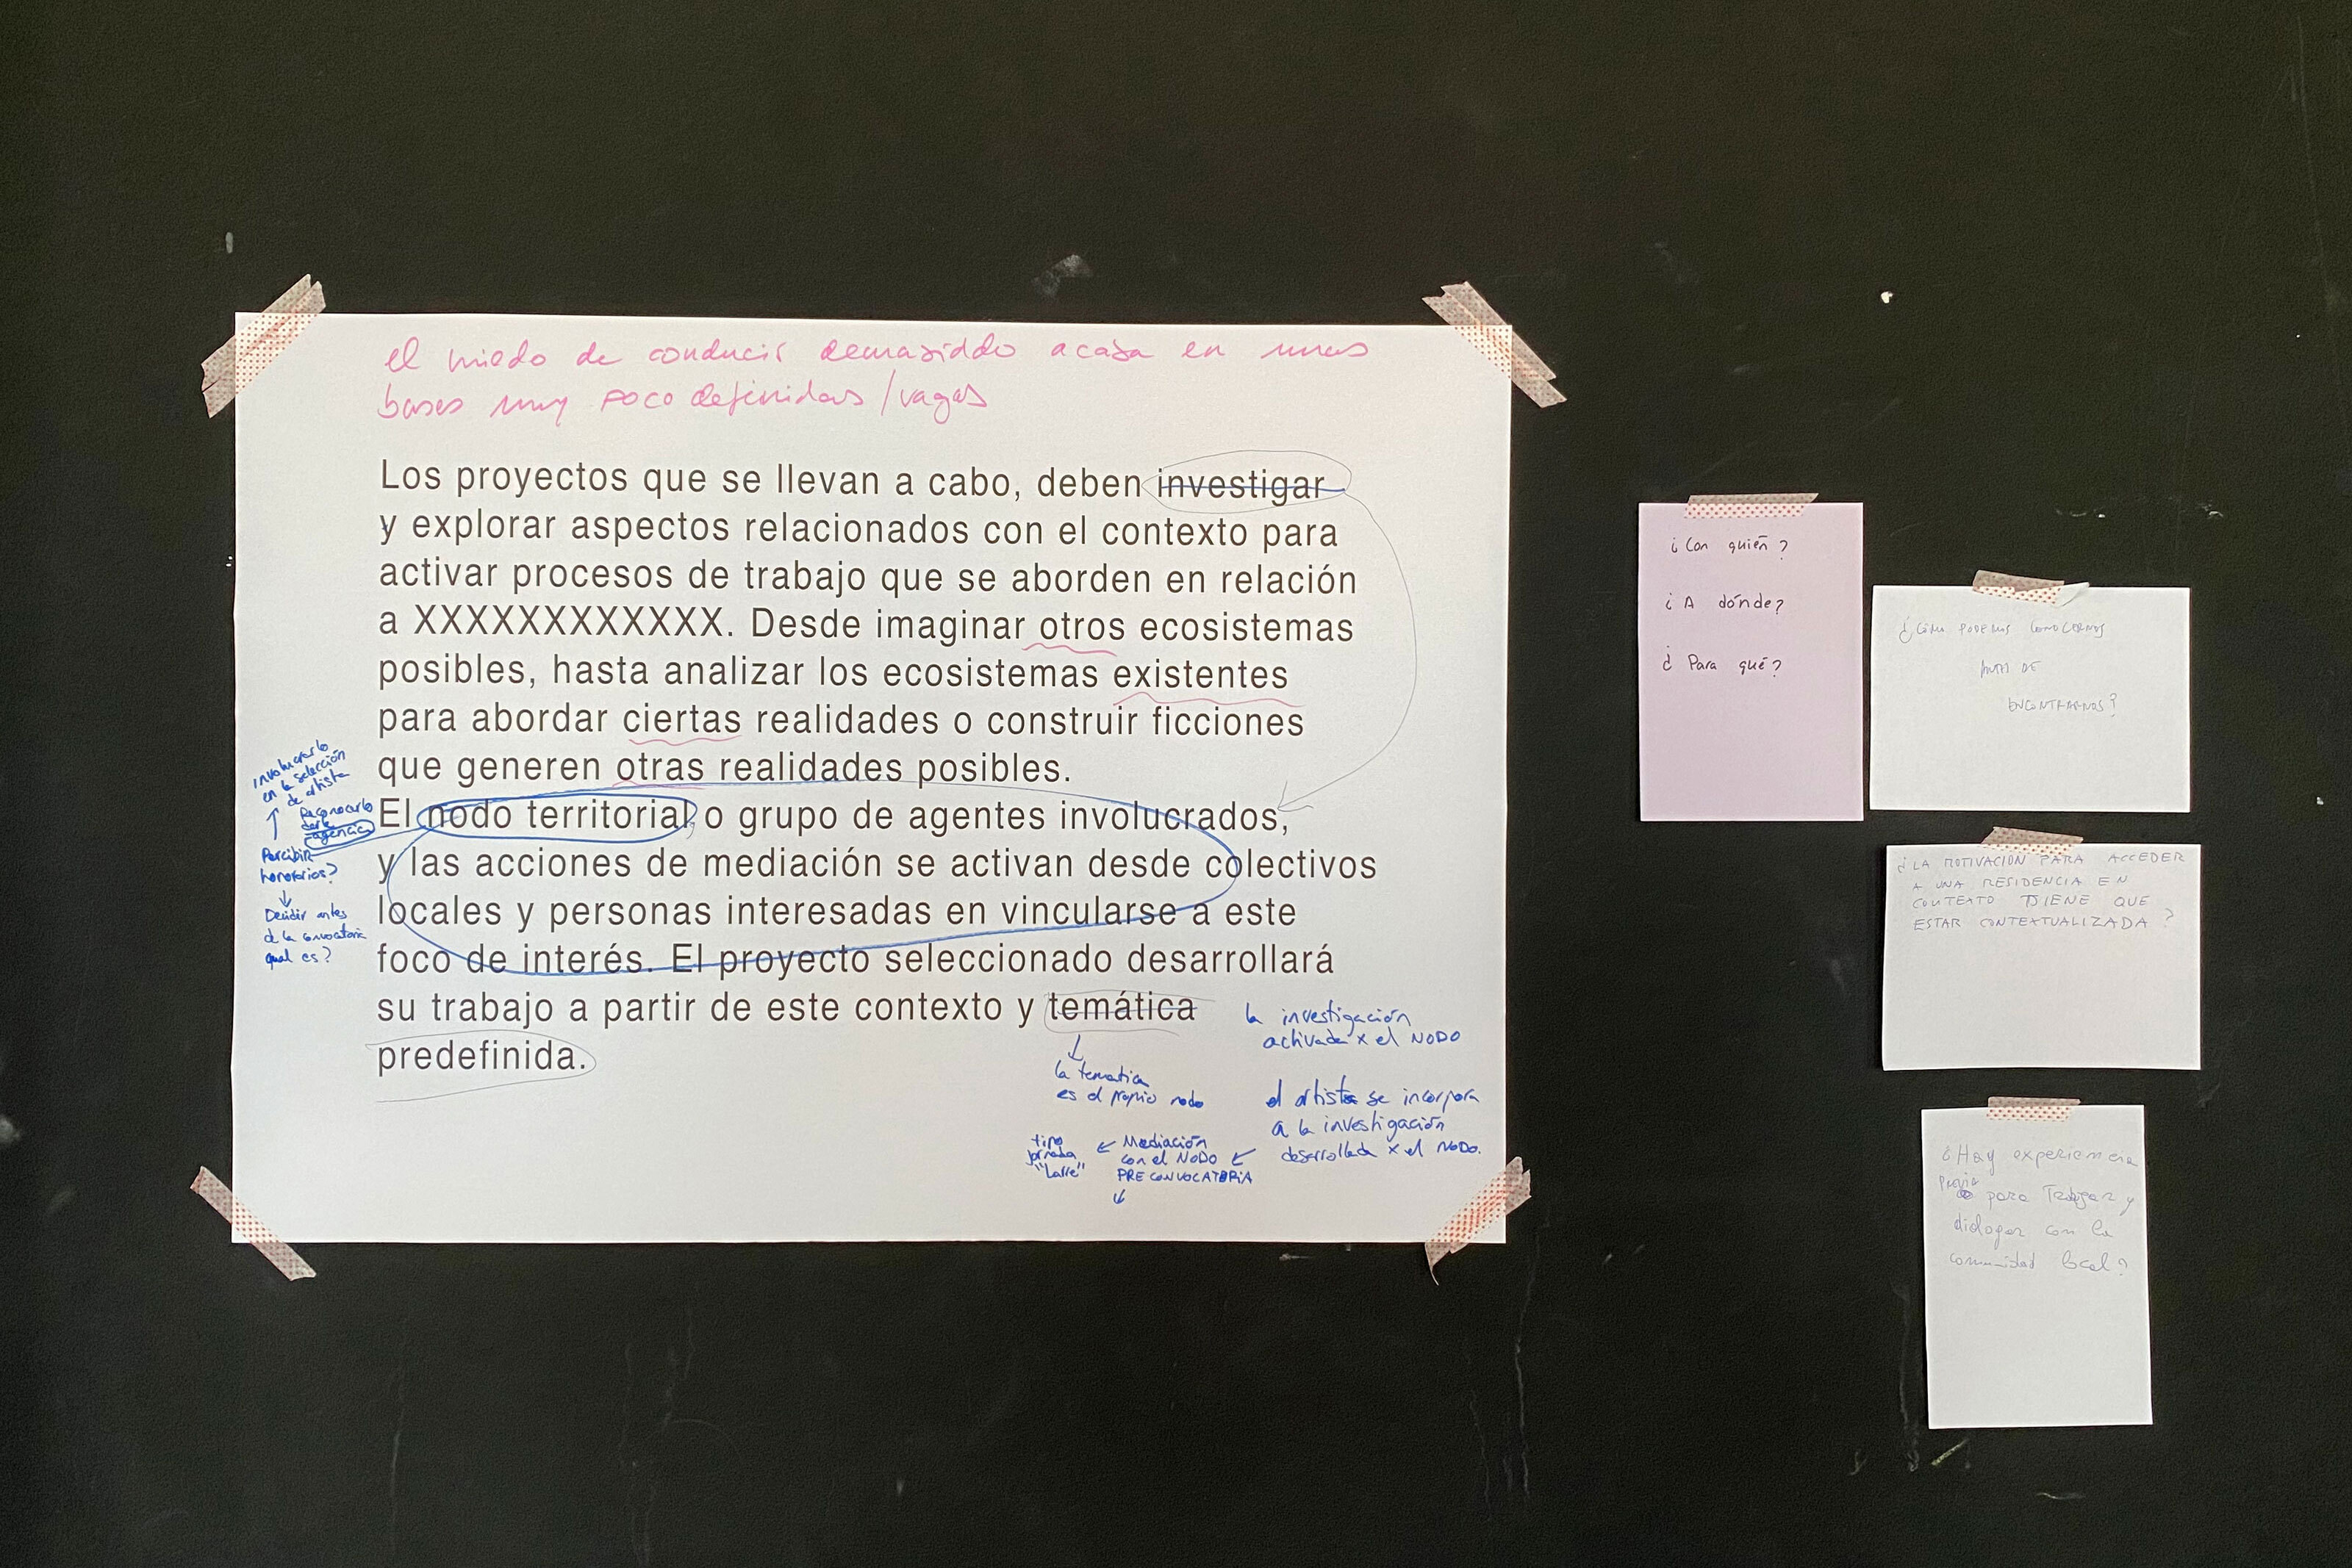 el miedo de conducir demasiddo acasa en unas
bases muy poco definidas / vagas
Los proyectos que se llevan a cabo, deben investigar
y explorar aspectos relacionados con el contexto para
activar procesos de trabajo que se aborden en relación
a XXXXXXXXXXXX. Desde imaginar otros ecosistemas
posibles, hasta analizar los ecosistemas existentes
para abordar ciertas realidades o construir ficciones
que generen otras realidades posibles.
El nodo territorial, o grupo de agentes involucrados,
y las acciones de mediación se activan desde colectivos
locales y personas interesadas en vincularse a este
foco de interés. El proyecto seleccionado desarrollará
su trabajo a partir de este contexto y temática
predefinida.
involucrarlo
en la selección
de artista
Reconocerlo
darle
agencia
Percibir
honorarios?
Decidir antes
de la convocatoria
qual es?
la tematica
es el propio nodo
la investigación
activada x el NODO
el artista se incorpora
a la investigación
desarrollada x el NODO.
Mediación
con el NODO
PRE CONVOCATORIA
tipo
jornada
¿Con quién?
¿A dónde?
¿Para qué?
¿CÓMO PODEMOS CONOCERNOS
ANTES DE
ENCONTRARNOS?
¿LA MOTIVACIÓN PARA ACCEDER
A UNA RESIDENCIA EN
CONTEXTO TIENE QUE
ESTAR CONTEXTUALIZADA?
¿Hay experiencia
previa
para Trabajar y
dialogar con la
comunidad local?